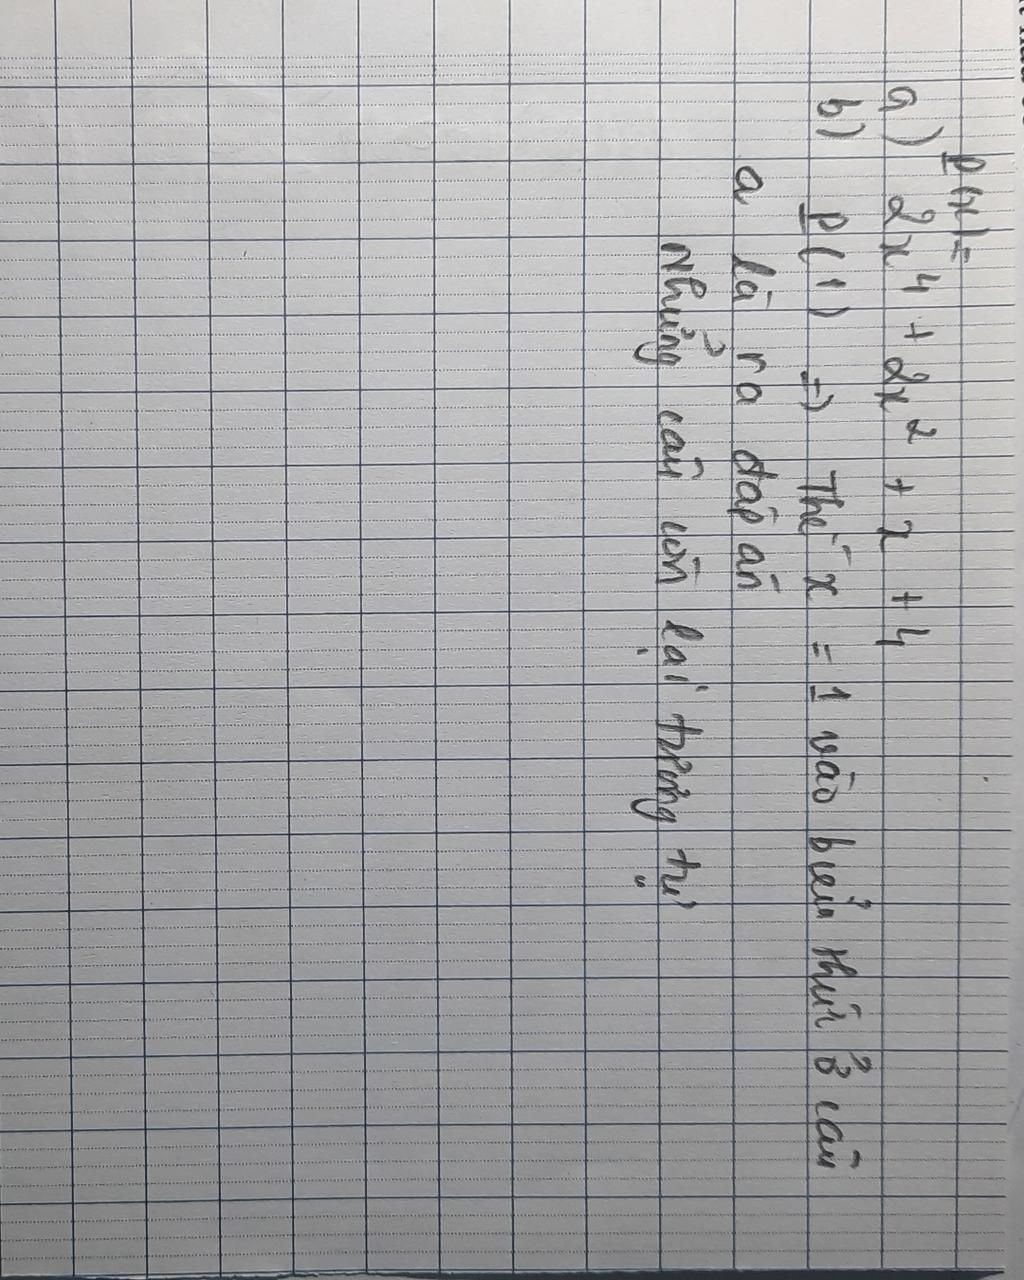 P(x) =
a) 2x⁴ + 2x² + x + 4
b) P(1) => Thế x = 1 vào biểu thức ở câu
a là ra đáp án
Những câu còn lại tương tự